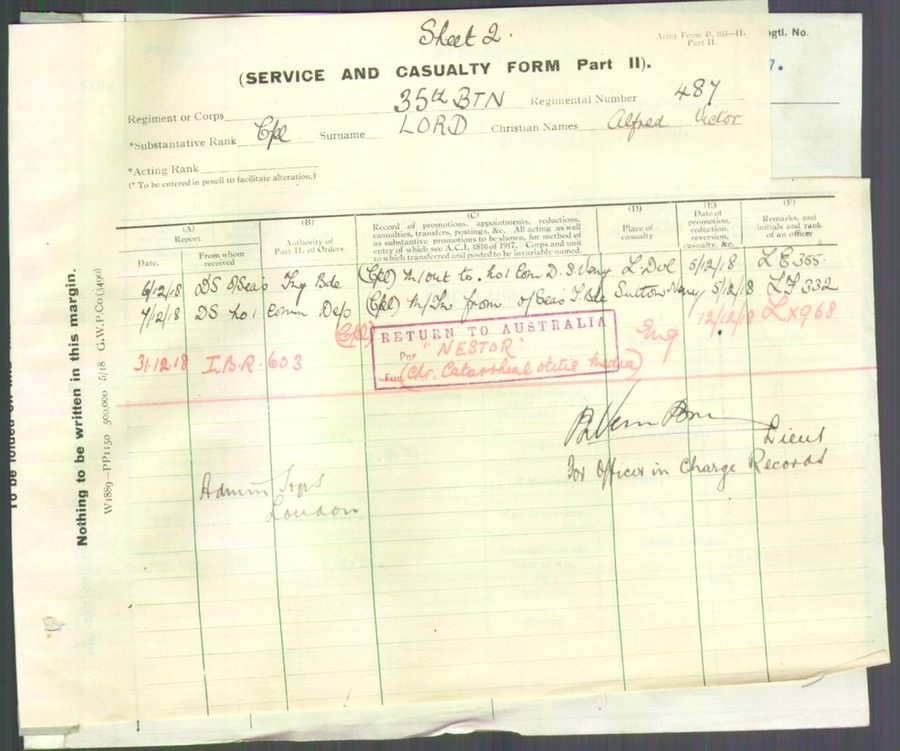 Sheet 2.
Army Form B. 103—II.
Part II.
egtl. No.
7.
(SERVICE AND CASUALTY FORM Part II).
Regiment or Corps 35th BTN Regimental Number 487
*Substantative Rank Cpl Surname LORD Christian Names Alfred Victor
*Acting Rank
(* To be entered in pencil to facilitate alteration.)
(A) (B) (C) (D) (E) (F)
Report
Date. From whom received
Authority of Part II. of Orders
Record of promotions, appointments, reductions, casualties, transfers, postings, &c. All acting as well as substantive promotions to be shown, for method of entry of which see A.C.I., 1816 of 1917. Corps and unit to which transferred and posted to be invariably named.
Place of casualty
Date of promotion, reduction, reversion, casualty, &c.
Remarks, and initials and rank of an officer
6/12/18 DS O/Seas Trg Bde (Cpl) M/out to No 1 Con D. S. Veny L. Dvl 5/12/18 LE 355
7/12/18 DS No 1 Comm Dep (Cpl) M/In from O/Seas T. Bde Sutton Veny 5/12/18 LF 332
31.12.18 I.B.R. 603 (Cpl) RETURN TO AUSTRALIA Eng 12/12/18 LX968
Per "NESTOR"
For (Chr. Catarrhal otitis Media)
Lieut
For Officer in Charge Records
Admin Hqrs
London
To be folded on this
Nothing to be written in this margin.
W1889—PP1150 500,000 5/18 G.W.P.Co (3490)